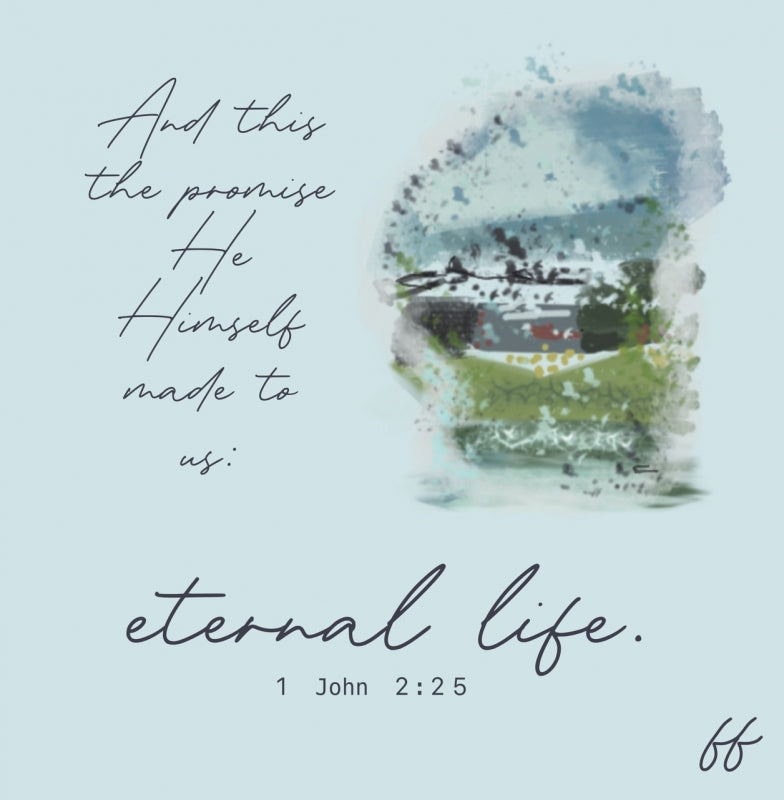 And this
the promise
He
Himself
made to
us:
eternal life.
1 John 2:25
ff